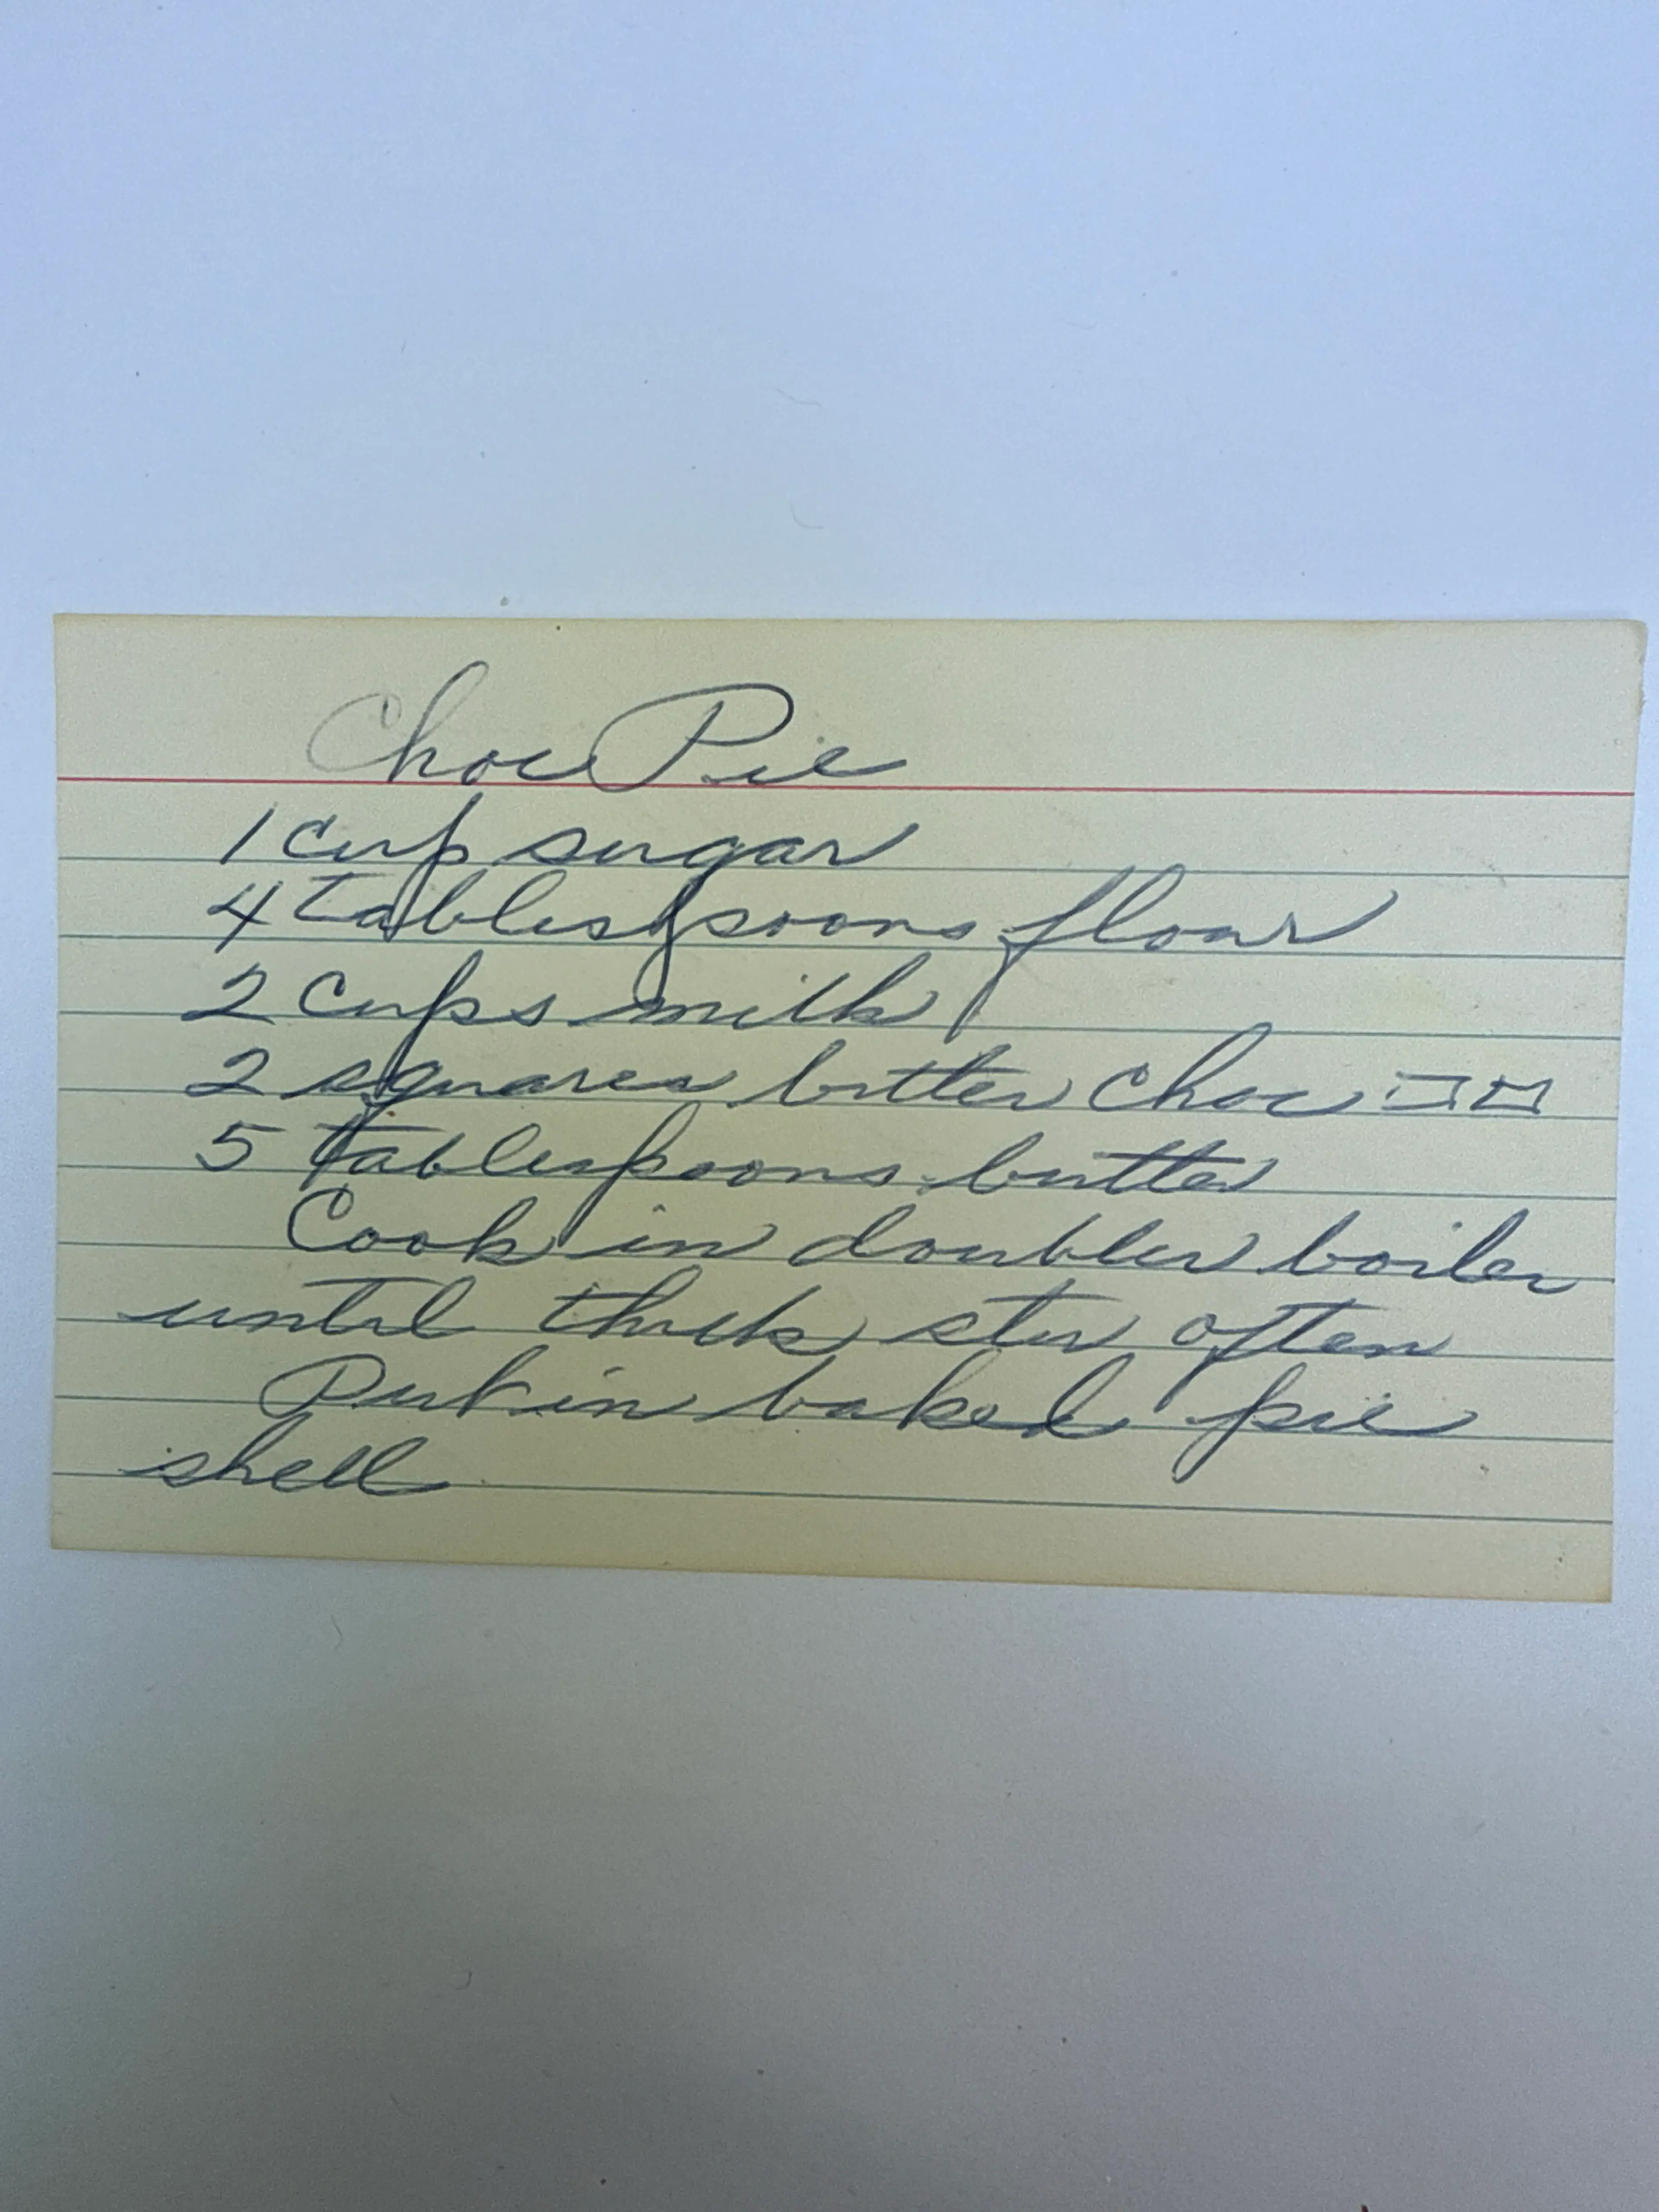 Choc Pie
1 cup sugar
4 tablespoons flour
2 cups milk
2 squares bitter choc
5 tablespoons butter
Cook in double boiler
until thick stir often
Put in baked pie
shell